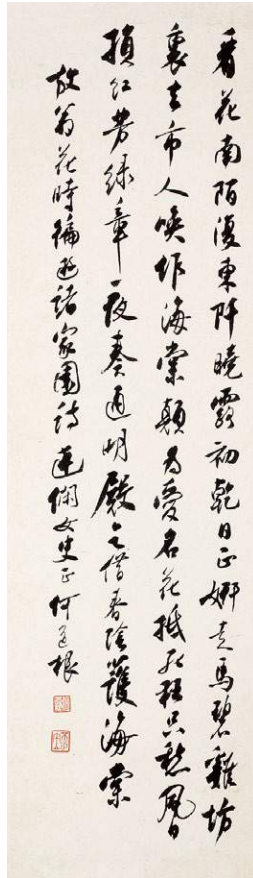 看花南陌復東阡曉露初乾日正妍走馬碧雞坊
裏去市人喚作海棠顛為愛名花抵死狂只愁風日
損紅芳綠章夜奏通明殿乞借春陰護海棠
放翁花時徧遊諸家園詩 蓮女史正何根